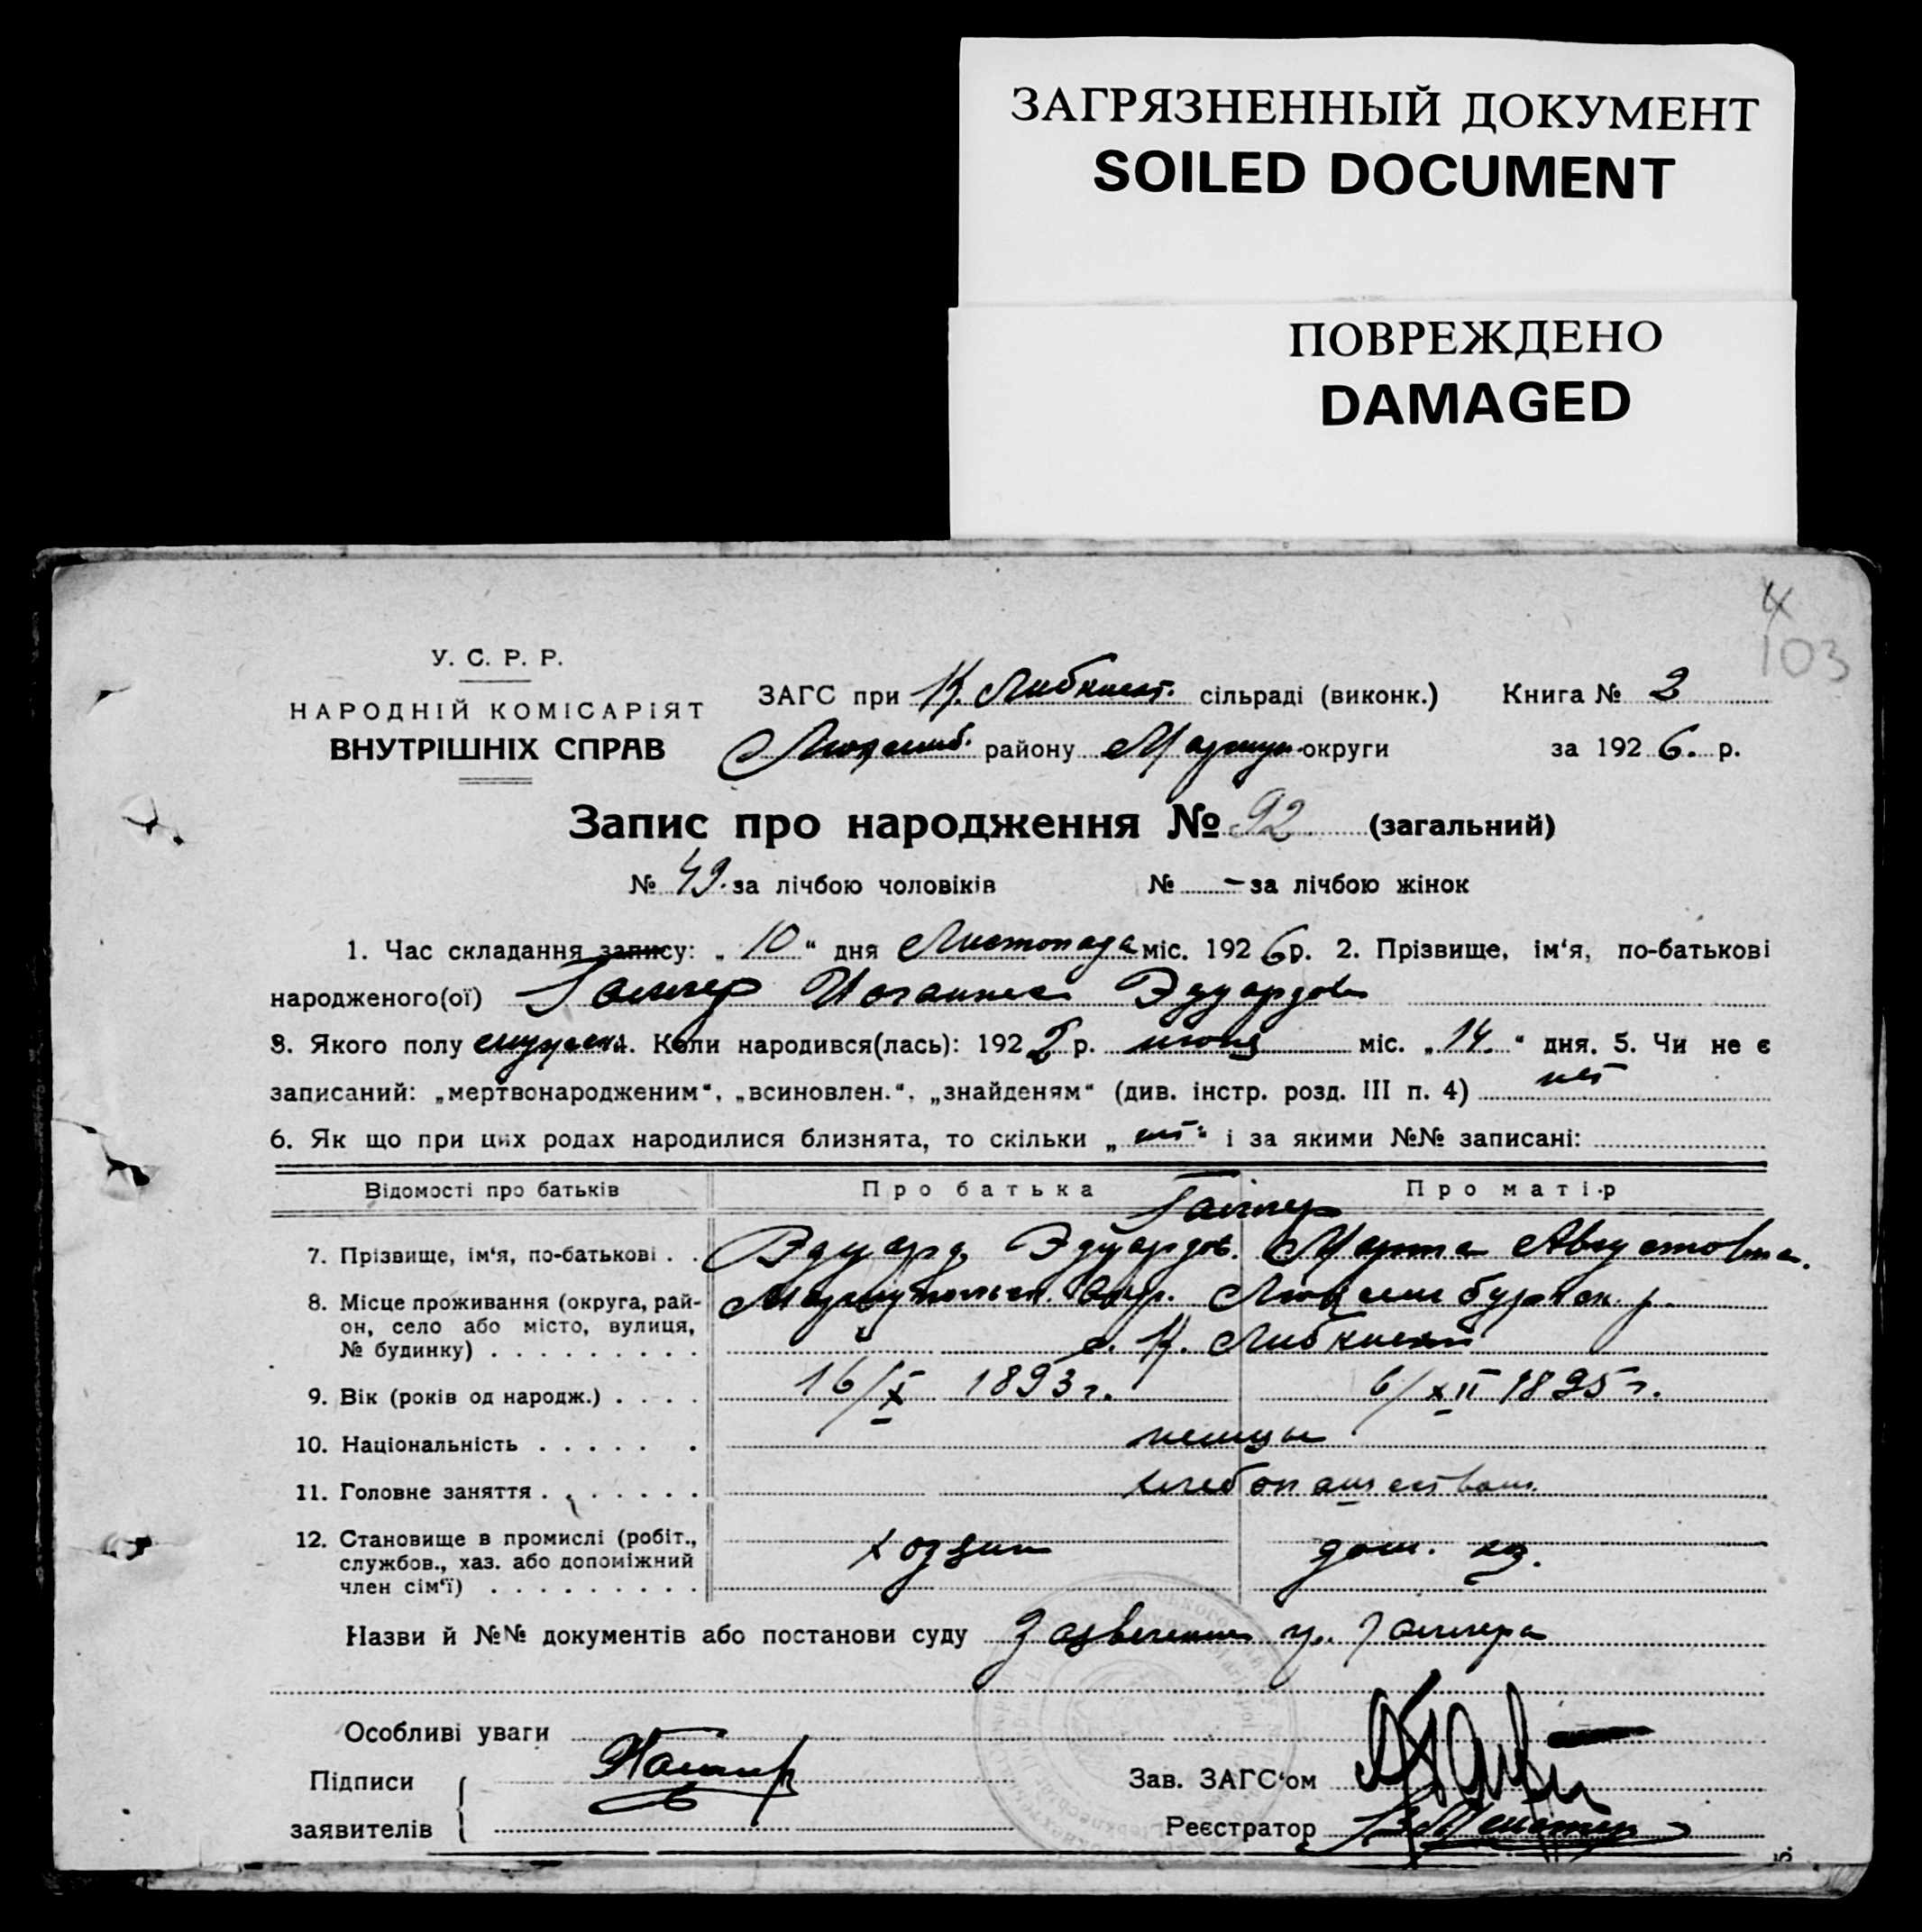 ЗАГРЯЗНЕННЫЙ ДОКУМЕНТ
SOILED DOCUMENT
ПОВРЕЖДЕНО
DAMAGED
4
103
У. С. Р. Р.
НАРОДНІЙ КОМІСАРІЯТ
ВНУТРІШНІХ СПРАВ
ЗАГС при К. Либкнехт. сільраді (виконк.) Книга № 2
Люксемб. району Мариуп. округи за 1926. р.
Запис про народження № 92 (загальний)
№ 49. за лічбою чоловіків № – за лічбою жінок
1. Час складання запису: „ 10 “ дня Листопада міс. 1926 р. 2. Прізвище, ім‘я, по-батькові
народженого(ої) Иоганнес Эдуардов
3. Якого полу мужеск. 4. Коли народився(лась): 192 р. июня міс. „ 14. “ дня. 5. Чи не є
записаний: „мертвонародженим“, „всиновлен.“, „знайденям“ (див. інстр. розд. III п. 4) нет
6. Як що при цих родах народилися близнята, то скільки „ нет “ і за якими №№ записані:
Відомості про батьків Про батька Про матір
7. Прізвище, ім‘я, по-батькові . . Эдуард Эдуардов. Марта Августовна.
8. Місце проживання (округа, рай-он, село або місто, вулиця, № будинку) Мариупольск. Окр. Люксембургск. р.
с. К. Либкнехт
9. Вік (років од народж.) . . . . 16/X 1893 г. 6/XII 1895 г.
10. Національність . . . . . . немцы
11. Головне заняття . . . . . . . хлебопашеством
12. Становище в промислі (робіт., службов., хаз. або допоміжний член сім‘ї) . . . . . . . . . хозяин дом. хоз.
Назви й №№ документів або постанови суду Заявление гр.
Особливі уваги
Підписи
заявителів
Зав. ЗАГС‘ом
Реєстратор